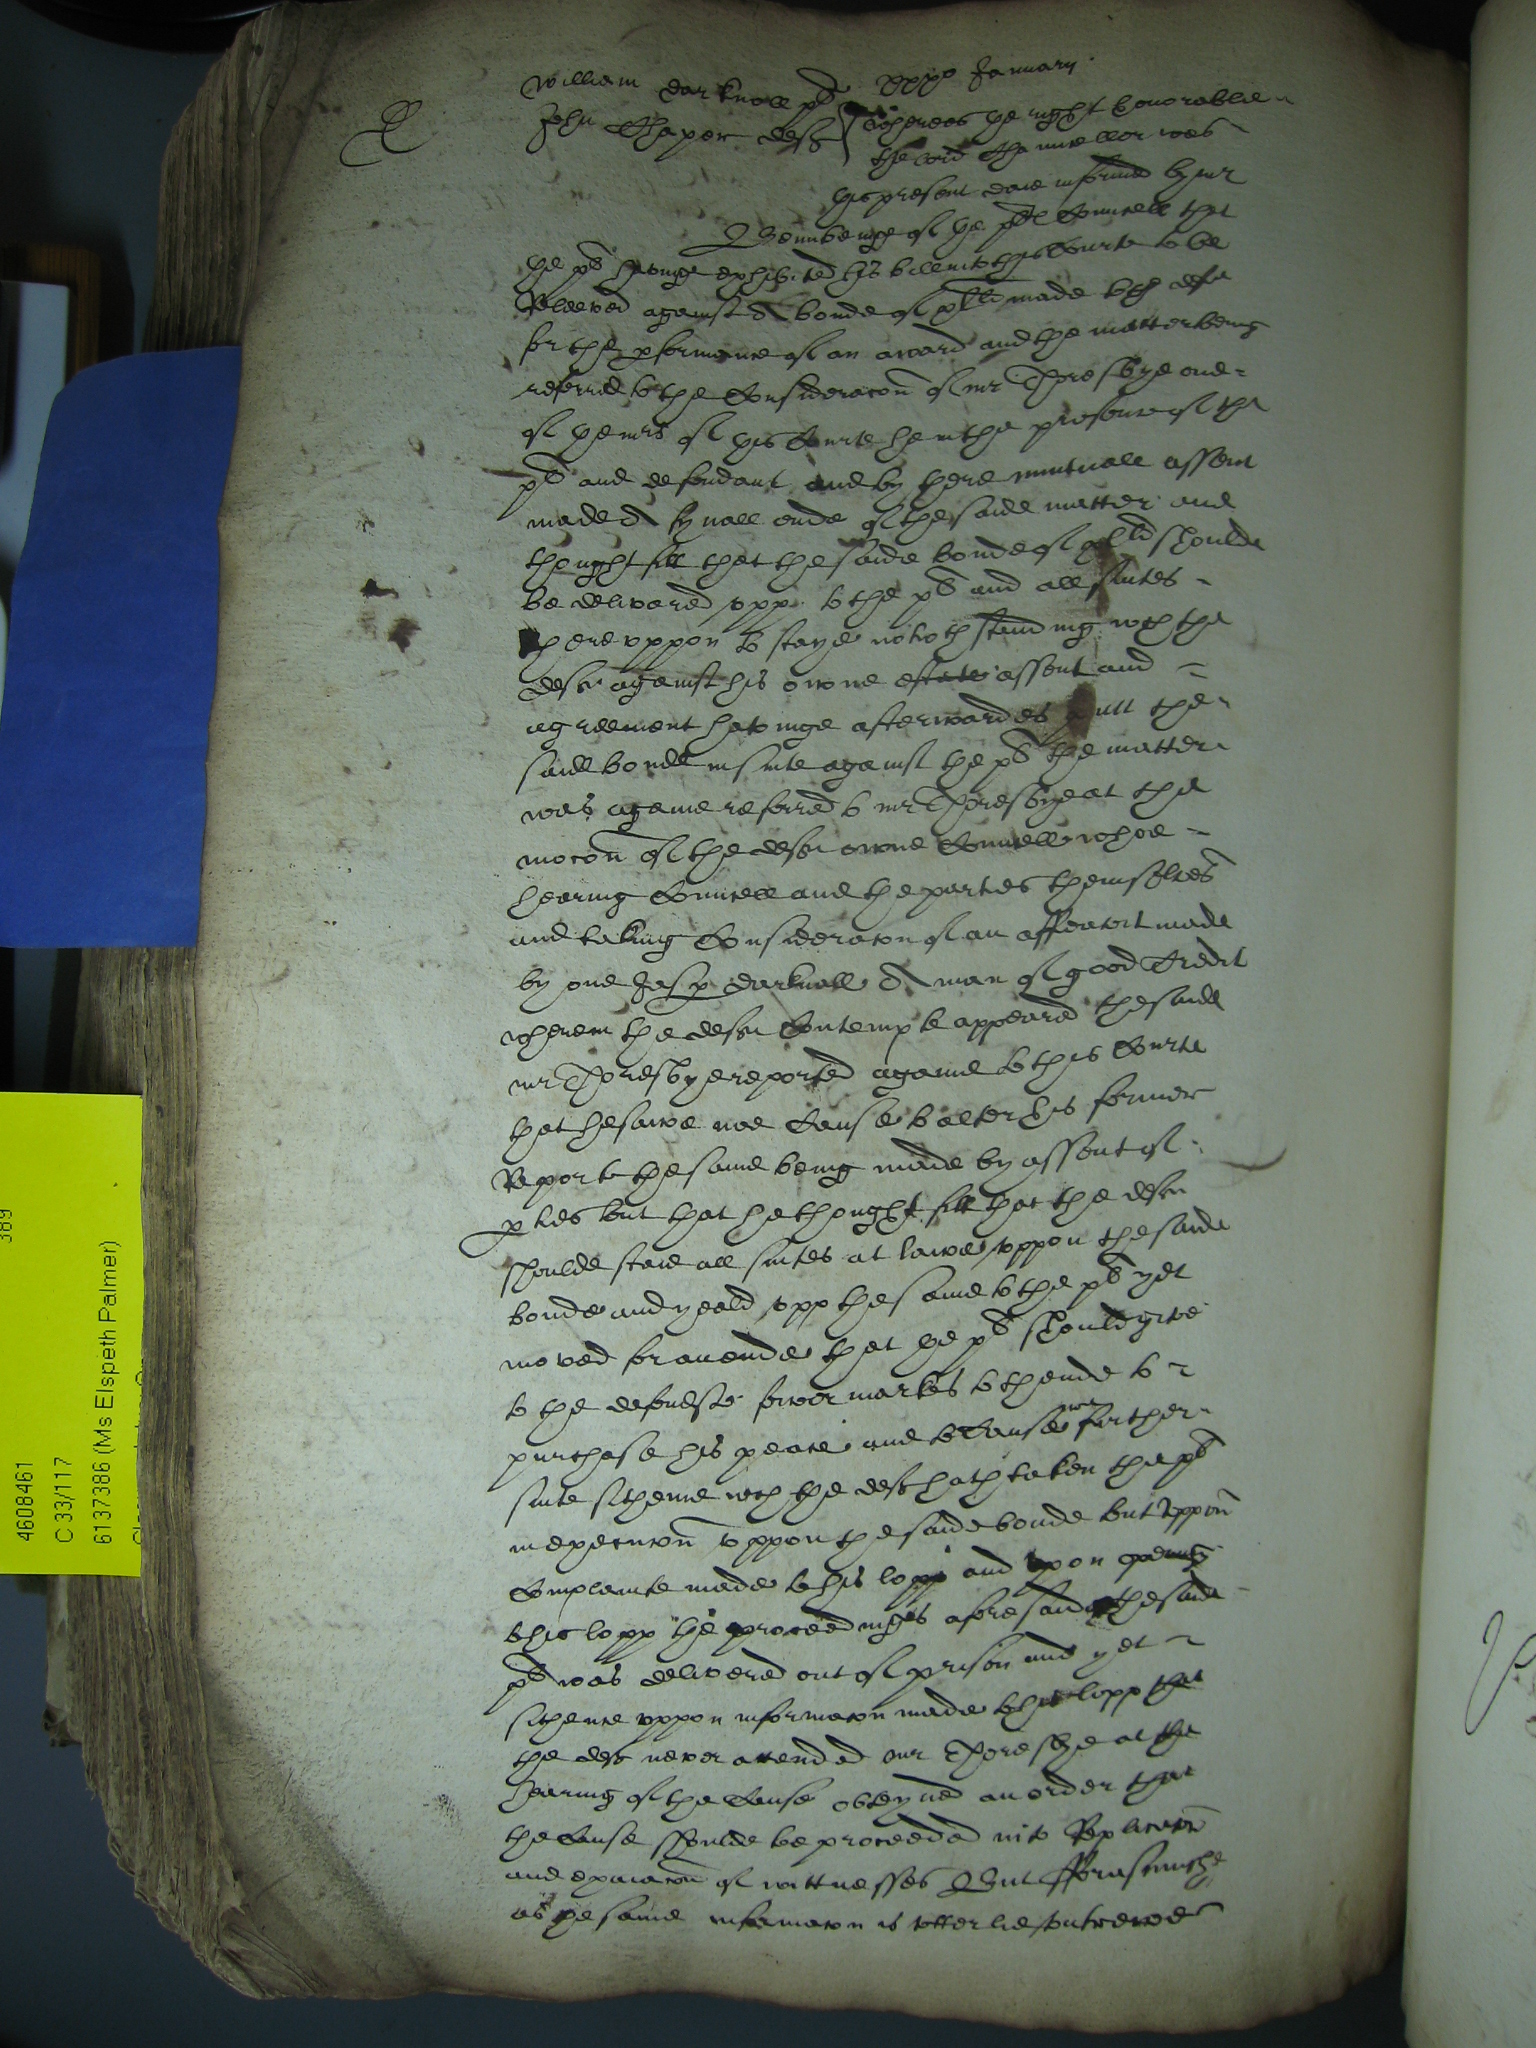 William Darknall pl xxxo January
John Chaper def Whereas the right honorable
the lord Chauncellor was
this present daie informed by mr
beinge of the pl Councell that
the pl havinge exhibited his bill into this Courte to be
Releeved against A bonde of made to the
for the pformance of an award and the matter being
referred to the Consideracon of mr one
of the mrs of this Courte he in the presence of the
pl and defendant and by there mutuall assent
made A fynall ende of the saide matter and
thought fitt that the saide bonde of shoulde
be delivered vpp to the pl and all suites
therevppon to staye notwthstanding wch the
deft against his owne estate assent and
agreement havinge afterwardes putt the
saide bonde in suite against the pl the matter
was againe referred to mr at the
mocon of the deft owne Councell whoe
hearing Councell and the parties themselves
and taking Consideracon of an affidavit made
by one Jasp Darknall A man of good Credit
wherein the deft Contempte appeared the saide
mr reported againe to this Courte
that he sawe noe Cause to alter his former
Reporte the same being made by assent of
pties but that he thought fitt that the deft
shoulde staie all suites at lawe vppon the saide
bonde and yeald vpp the same to the pl yet
moved for an ende that the pl should give
to the defendte fower markes to thende to
purchase his peace and to Cause noe further
suite sithence wch the deft hath taken the pl
in execucon vppon the saide bonde but vppon
Complainte made to his lopp and vpon
to his lopp the proceedinges aforesaid the saide
pl was delivered out of prison and yet
sithence vppon informacon made to his lopp that
the deft never attended mr at the
hearing of the Cause obteyned an order that
the Cause shoulde be proceeded in to Replicacon
and examacon of wittnesses But fforasmuche
as the same informacon is vtterlie vntrewe
4608461
C 33/117
6137386 (Ms Elspeth Palmer)
389